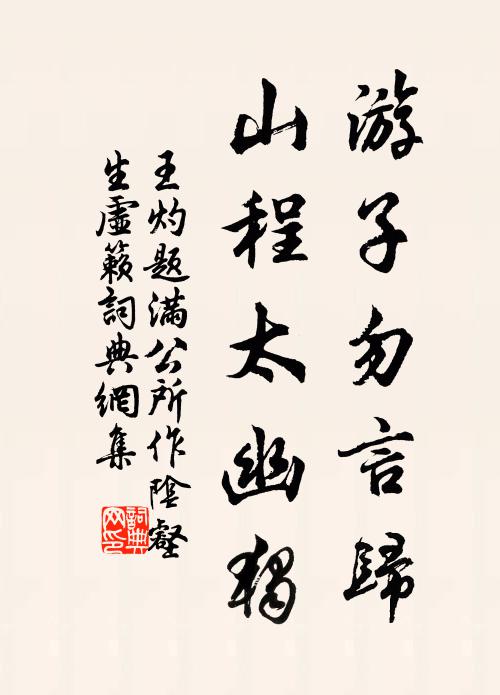 游子勿言歸
山程太幽獨
王灼題滿公所作陰壑
生虛籟詞典網集
詞典
网印